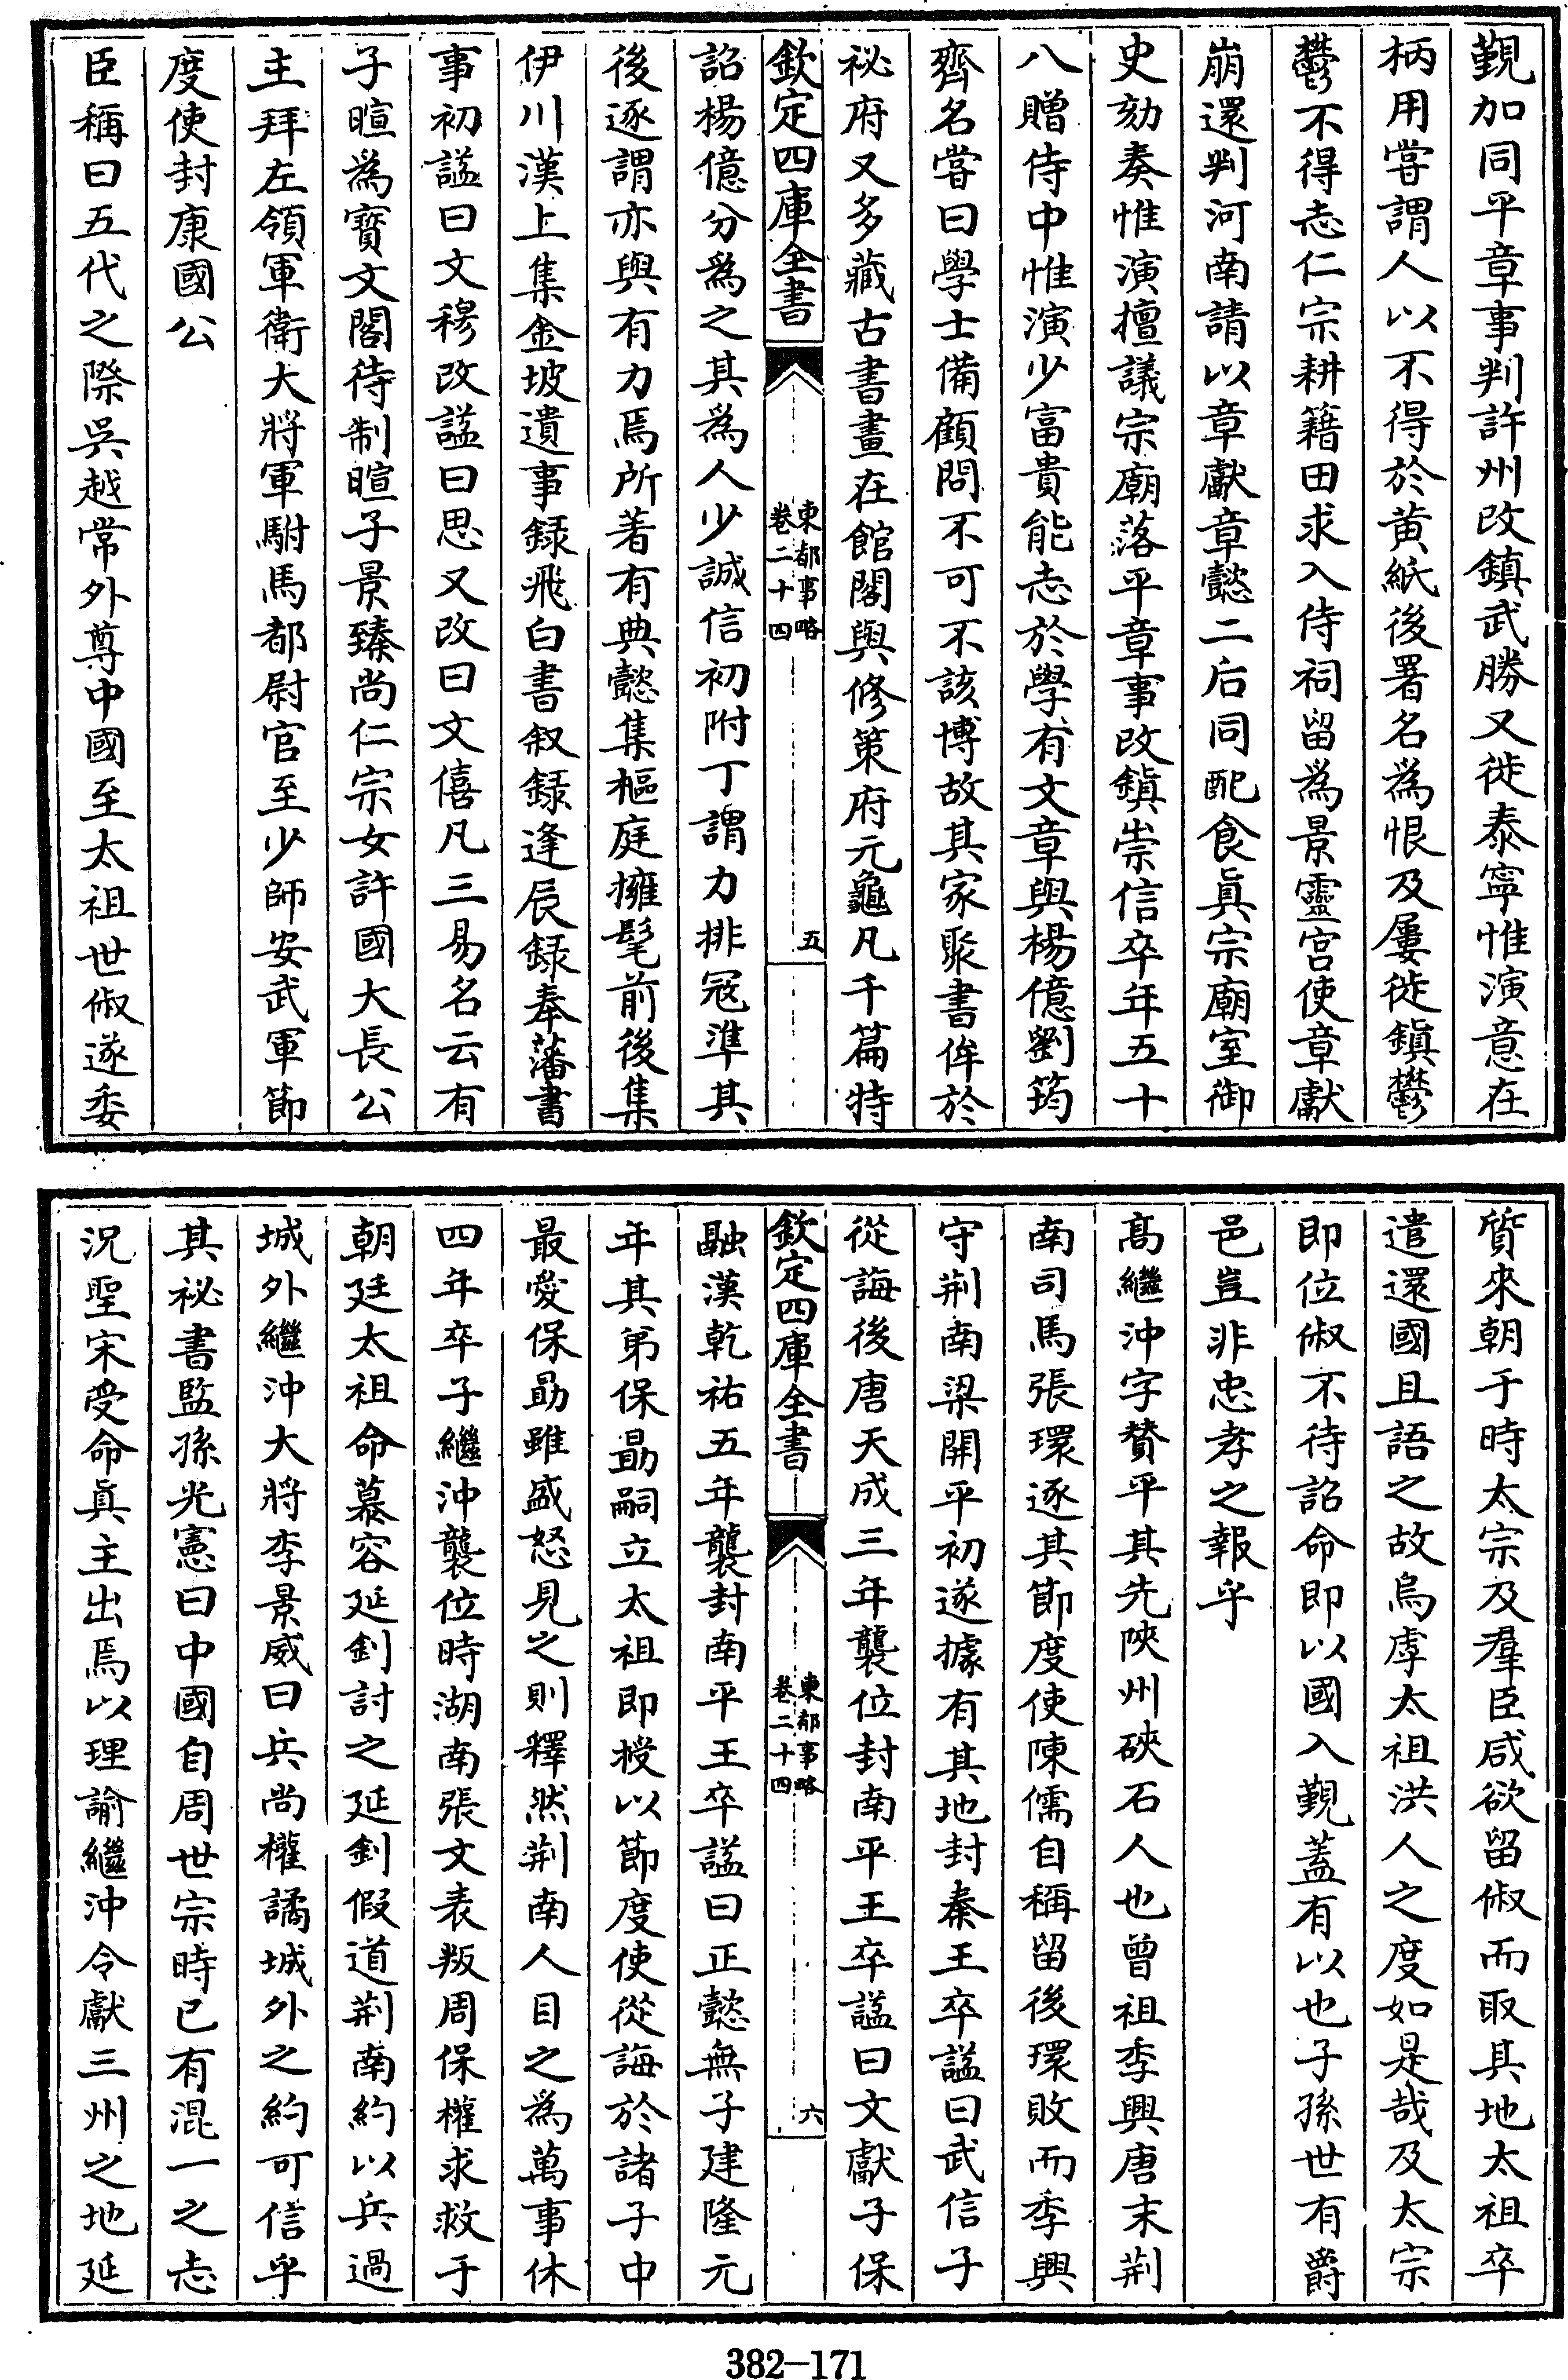 覲加同平章事判許州改鎮武勝又徙泰寧惟演意在
柄用嘗謂人以不得於黄紙後署名為恨及屢徙鎮鬱
鬱不得志仁宗耕籍田求入侍祠留為景靈宫使章獻
崩還判河南請以章獻章懿二后同配食眞宗廟室御
史劾奏惟演擅議宗廟落平章事改鎮崇信卒年五十
八贈侍中惟演少富貴能志於學有文章與楊億劉筠
齊名嘗曰學士備顧問不可不該博故其家聚書侔於
祕府又多藏古書畫在館閣與修策府元龜凡千篇特
欽定四庫全書
東都事略
卷二十四
五
詔楊億分為之其為人少誠信初附丁謂力排冦準其
後逐謂亦與有力焉所著有典懿集樞庭擁髦前後集
伊川漢上集金坡遺事録飛白書叙録逢辰録奉藩書
事初諡曰文穆改諡曰思又改曰文僖凡三易名云有
子暄為寳文閣待制暄子景臻尚仁宗女許國大長公
主拜左領軍衛大將軍駙馬都尉官至少師安武軍節
度使封康國公
臣稱曰五代之際吳越常外尊中國至太祖世俶遂委
質來朝于時太宗及羣臣咸欲留俶而取其地太祖卒
遣還國且語之故烏虖太祖洪人之度如是哉及太宗
即位俶不待詔命即以國入覲蓋有以也子孫世有爵
邑豈非忠孝之報乎
髙繼沖字賛平其先陜州硤石人也曾祖季興唐末荆
南司馬張瓌逐其節度使陳儒自稱留後瓌敗而季興
守荆南梁開平初遂據有其地封秦王卒諡曰武信子
從誨後唐天成三年襲位封南平王卒諡曰文獻子保
欽定四庫全書
東都事略
卷二十四
六
融漢乾祐五年襲封南平王卒諡曰正懿無子建隆元
年其弟保勗嗣立太祖即授以節度使從誨於諸子中
最愛保勗雖盛怒見之則釋然荆南人目之為萬事休
四年卒子繼沖襲位時湖南張文表叛周保權求救于
朝廷太祖命慕容延釗討之延釗假道荆南約以兵過
城外繼沖大將李景威曰兵尚權譎城外之約可信乎
其祕書監孫光憲曰中國自周世宗時已有混一之志
況聖宋受命眞主出焉以理諭繼沖令獻三州之地延
382-171